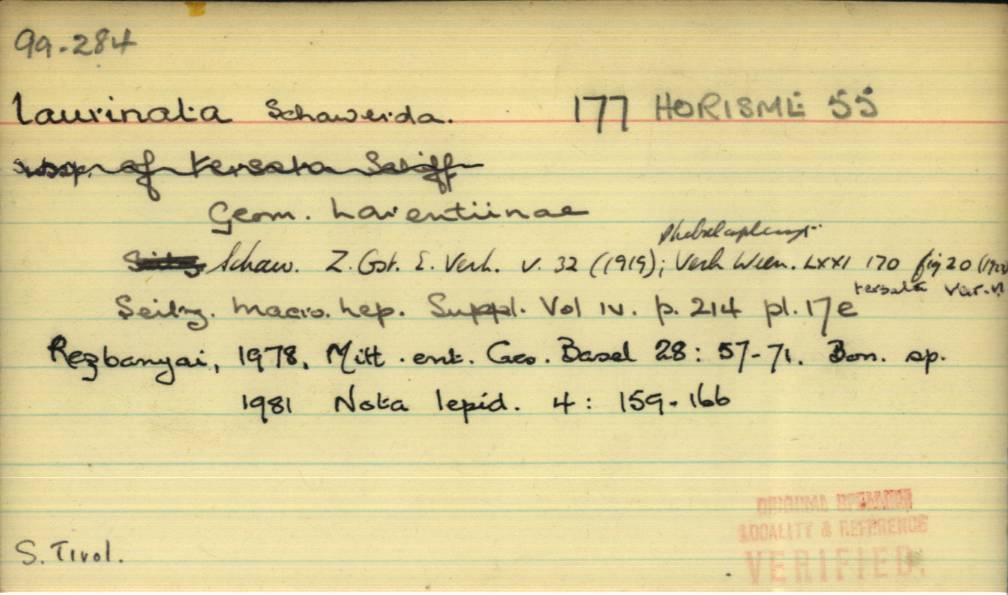 99.284
laurinata Schawerda. 177 HORISME 55
subsp. of tersata Schiff
Geom. Larentiinae
Seitz Schaw. Z. Öst. E. Verh. v. 32 (1919); Verh Wien. LXXI 170 fig 20
tersata var. n
Seitz. Macro. Lep. Suppl. Vol IV. p. 214 pl. 17e
Rezbanyai, 1978. Mitt. ent. Ges. Basel 28: 57-71. Bon. sp.
1981 Nota lepid. 4: 159-166
S. Tirol.
ORIGINAL
LOCALITY & REFERENCE
VERIFIED.